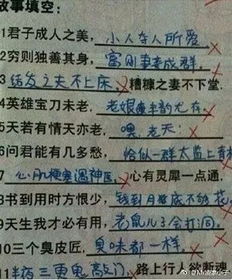 故事填空：
1君子成人之美，小人夺人所爱
2穷则独善其身，富则妻妾成群。
3结发之夫不上床，糟糠之妻不下堂。
4英雄宝刀未老，老娘风韵尤存
5天若有情天亦老，嘿，老天！
6问君能有几多愁，恰似一群太监上青楼
7心肌梗塞遇神医，心有灵犀一点通。
8书到用时方恨少，钱到月底不够花
9天生我才必有用，老鼠儿子会打洞
10三个臭皮匠，臭味都一样
11半夜三更鬼敲门，路上行人欲断魂